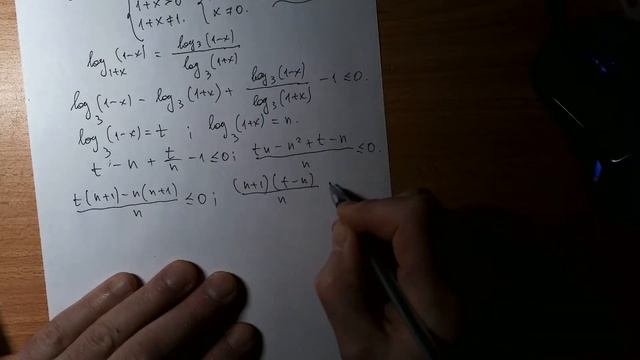 { 1+x>0 {
1+x≠1. x≠0.
log_{1+x}(1-x) = log_3(1-x) / log_3(1+x)
log_3(1-x) - log_3(1+x) + log_3(1-x) / log_3(1+x) - 1 ≤ 0.
log_3(1-x) = t ; log_3(1+x) = n.
t - n + t/n - 1 ≤ 0 ; (tn - n² + t - n) / n ≤ 0.
(t(n+1) - n(n+1)) / n ≤ 0 ; ((n+1)(t-n)) / n